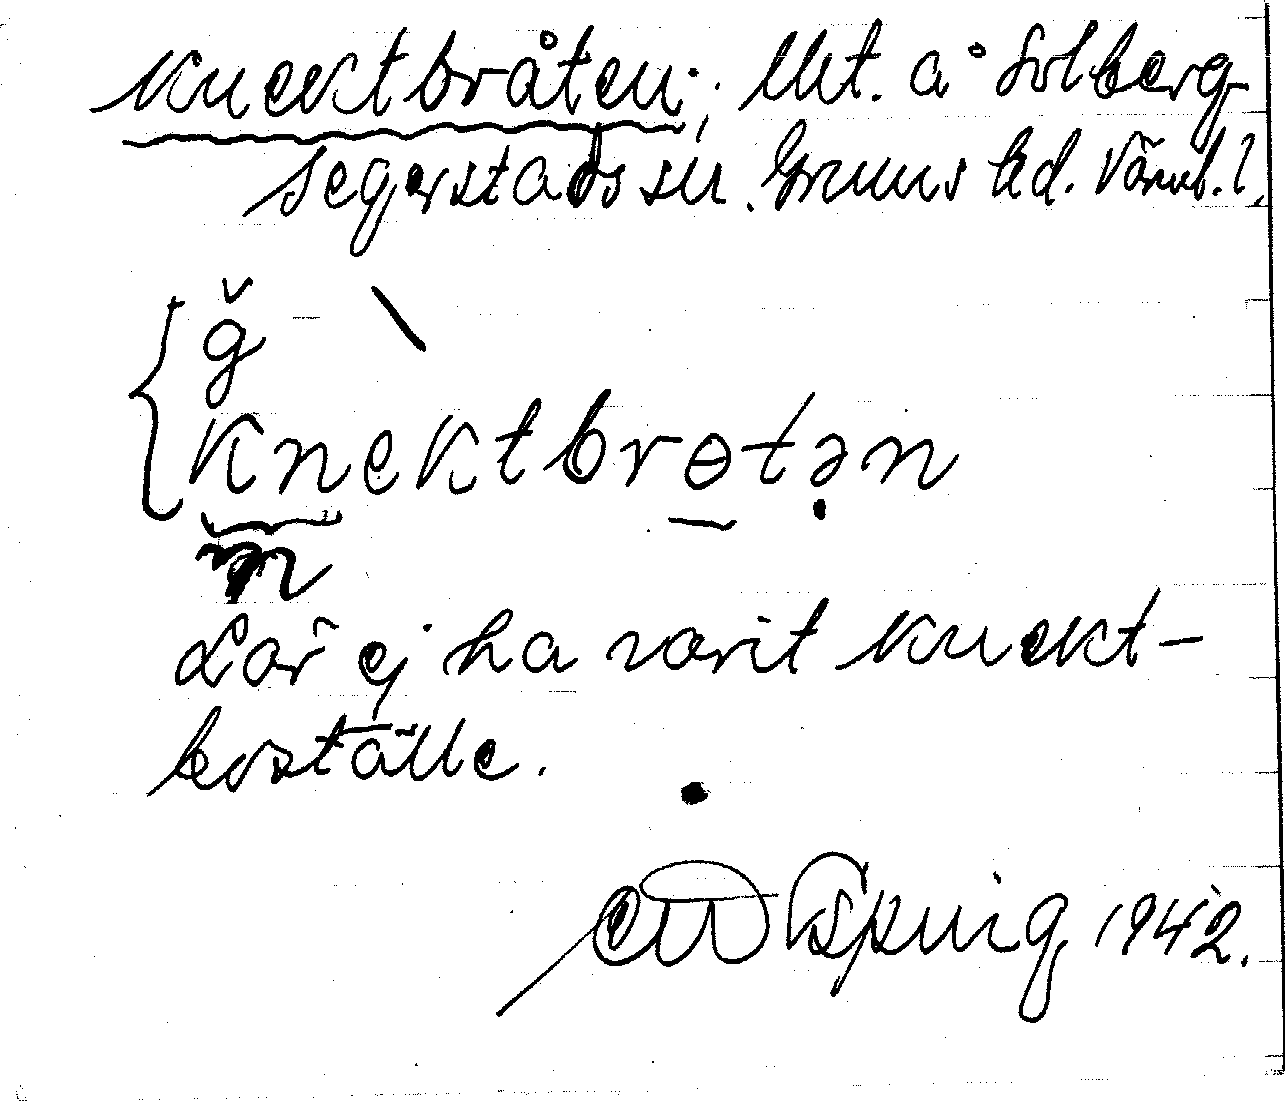 Knektbråten; Utt. a° Solberg
Segerstads sn. Grums hd. Värml. l.
ğ
knektbrɵtən
n
Lär ej ha varit knekt-
boställe.
Sping 1942.